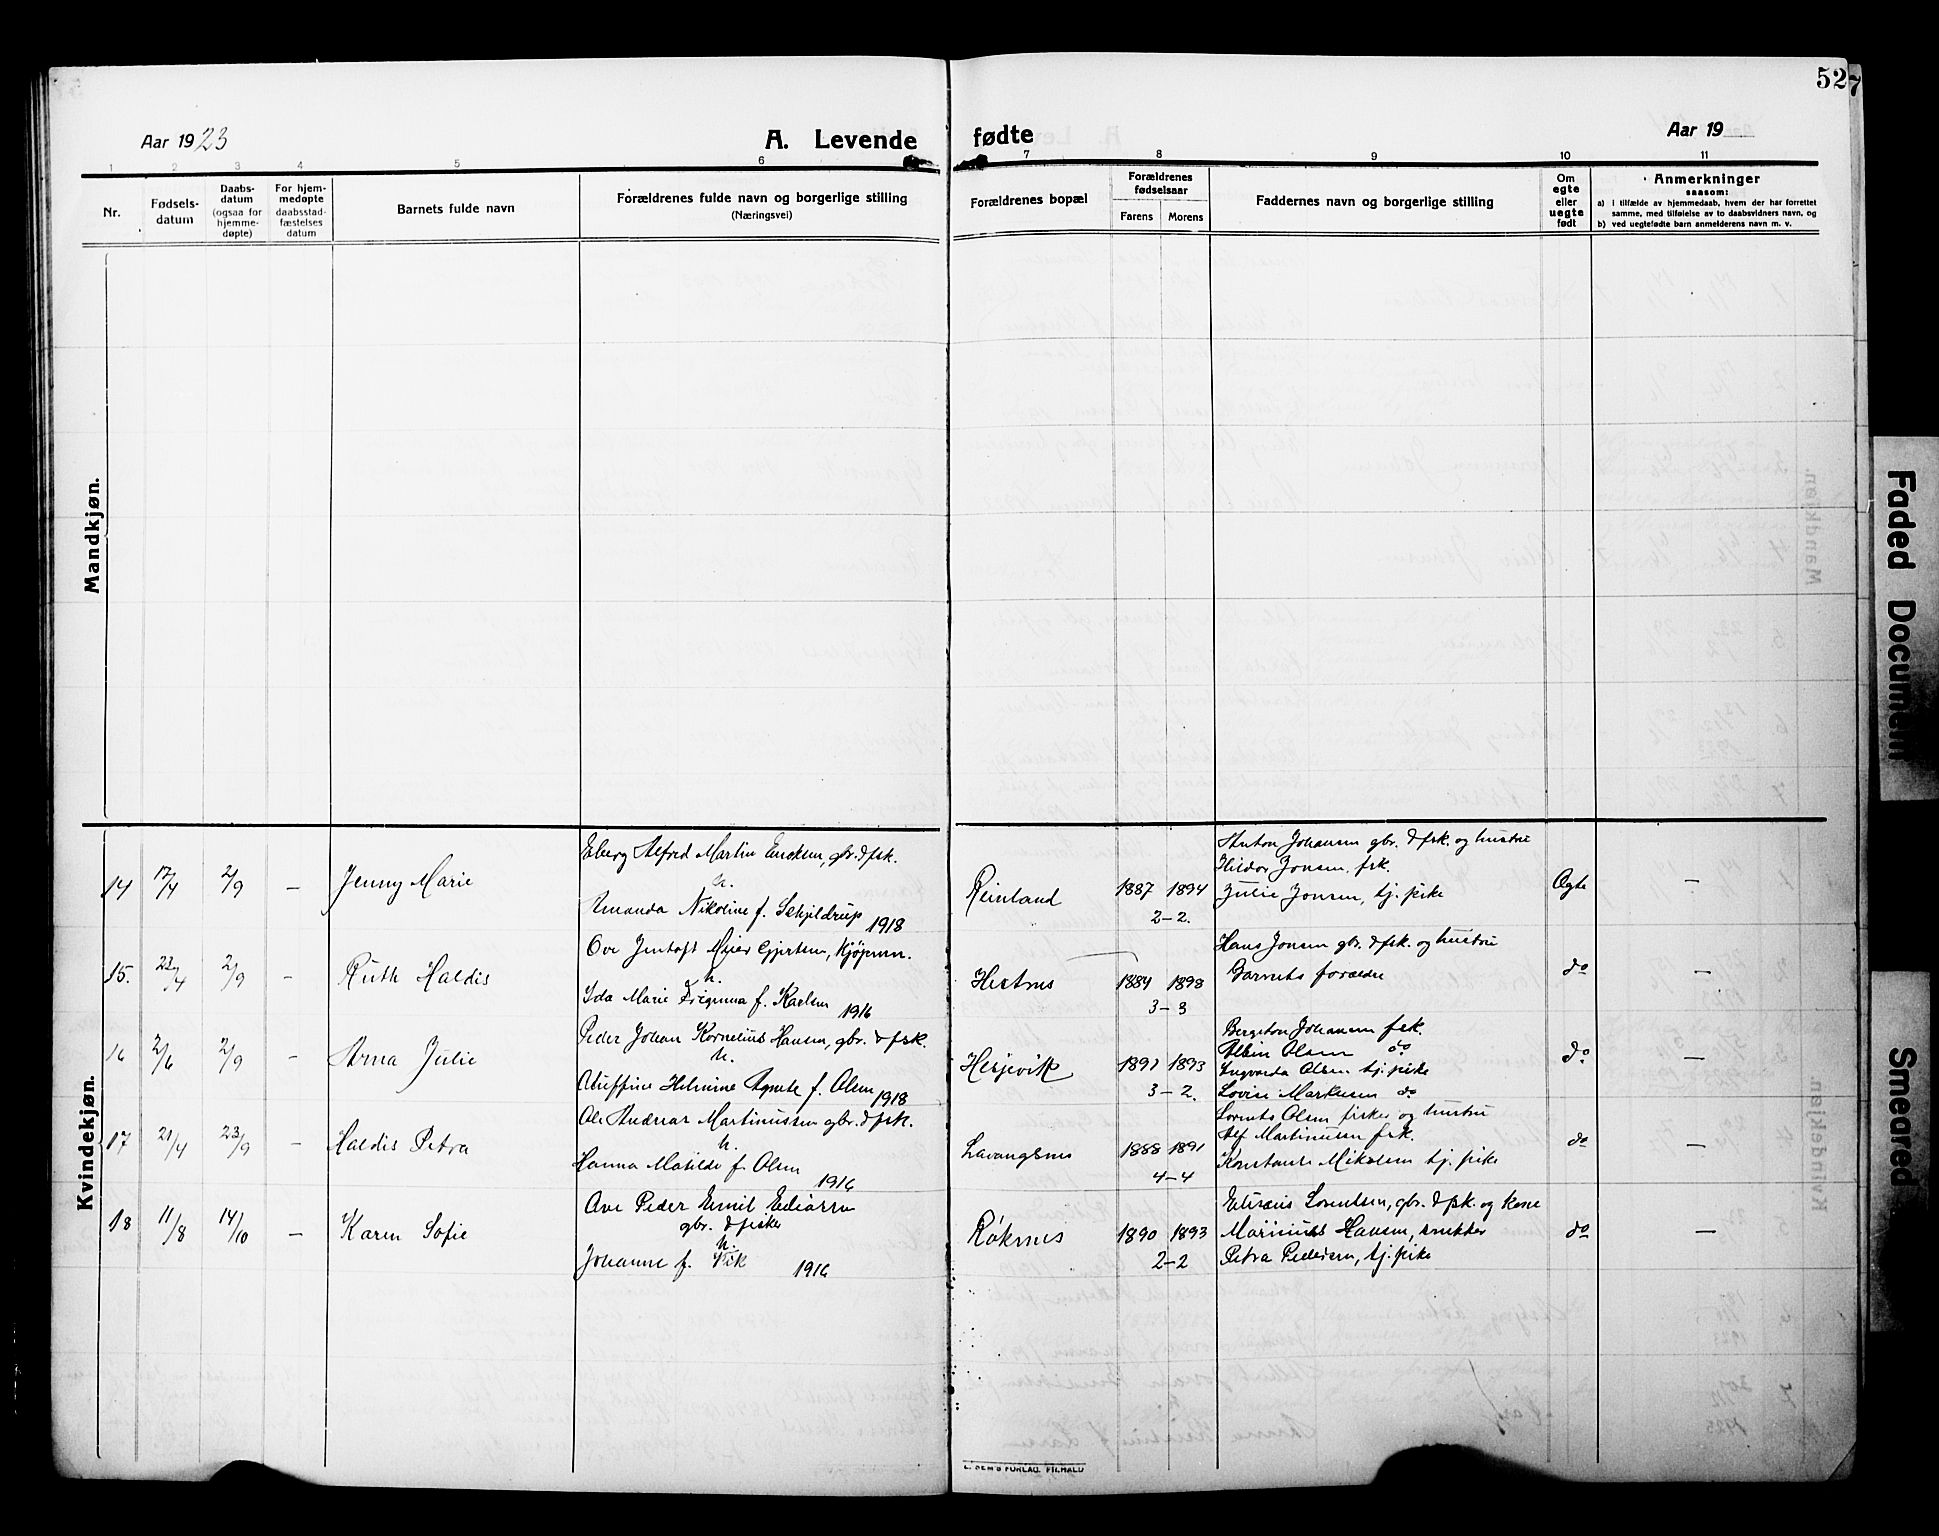 52
7
Aar 1923
A. Levende
fødte
Aar 19
1 2 3 4 5 6 7 8 9 10 11
Nr.
Fødsels-
datum
Daabs-
datum
(ogsaa for
hjemme-
døpte)
For hjem-
medøpte
daabsstad-
fæstelses
datum
Barnets fulde navn
Forældrenes fulde navn og borgerlige stilling
(Næringsvei)
Forældrenes bopæl
Forældrenes
fødselsaar
Farens Morens
Faddernes navn og borgerlige stilling
Om
egte
eller
uegte
født
Anmerkninger
saasom:
a) i tilfælde av hjemmedaab, hvem der har forrettet
samme, med tilføielse av to daabsvidners navn, og
b) ved uegtefødte barn anmelderens navn m. v.
Mandkjøn.
Kvindekjøn.
14 17/4 2/9 – Jenny Marie
Alfred Martin Ericksen, gbr. & fsk.
h.
Amanda Nikoline f. Schjeldrup 1918
Reinland 1887 1894
2–2.
Anton Johansen gbr. & fsk. og hustru
Hildor Jonsen, fsk.
Julie Jonsen, tj. pike
Ægte –
15. 23/4 2/9 – Ruth Haldis
Ove Jentoft Meier Gjertsen, Kjøpm.
h.
Ida Marie f. Karlsen 1916
Hestnes 1884 1898
3–3
Hans Jonsen gbr. & fsk. og hustru
Barnets forældre
do –
16 2/6 2/9 – Arna Julie
Peder Johan Kornelius Hansen, gbr. & fsk.
h.
Helmine Agnete f. Olsen 1918
Hesjevik 1891 1893
3–2.
Bergeton Johansen fsk.
Albin Olsen do
Ingvarda Olsen tj. pike
Lovise Markusen do
do –
17 21/4 23/9 – Haldis Petra
Ole Andreas Martinussen gbr. & fsk.
h.
Hanna Matilde f. Olsen 1916
Lavangsnes 1888 1891
4–4
Lorents Olsen fisker og hustru
Alf Martinusen fsk.
Konstanse Mikalsen tj. pike
do –
18 11/8 14/10 – Karen Sofie
Ove Peder Emil Ediassen
gbr. & fisker
h.
Johanne f. Vik 1916
Røkenes 1890 1893
2–2
Lorentsen, gbr. & fsk. og kone
Marinius Hansen, snekker
Petra Pedersen, tj. pike
do –
E. SEM'S FORLAG, F.HALD
Faded Document
Smeared